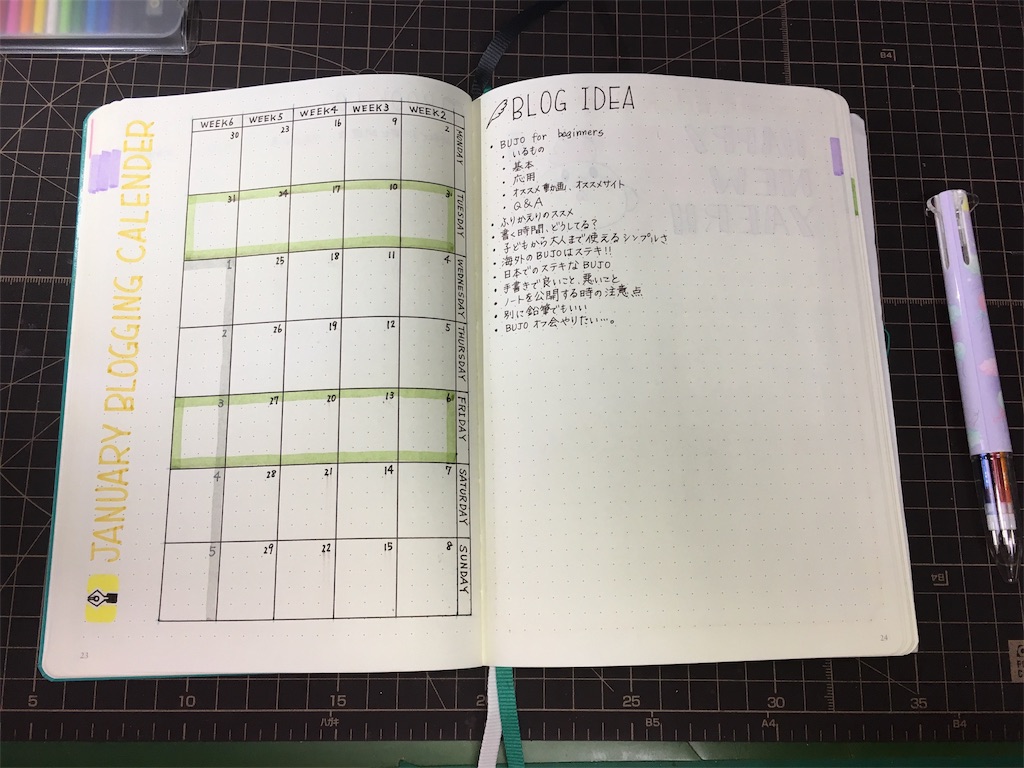 JANUARY BLOGGING CALENDER
WEEK6 WEEK5 WEEK4 WEEK3 WEEK2
30 23 16 9 2 MONDAY
31 24 17 10 3 TUESDAY
1 25 18 11 4 WEDNESDAY
2 26 19 12 5 THURSDAY
3 27 20 13 6 FRIDAY
4 28 21 14 7 SATURDAY
5 29 22 15 8 SUNDAY
23
BLOG IDEA
• BUJO for beginners
• いるもの
• 基本
• 応用
• オススメ動画、オススメサイト
• Q&A
• ふりかえりのススメ
• 書く時間、どうしてる?
• 子どもから大人まで使えるシンプルさ
• 海外のBUJOはステキ!!
• 日本でのステキなBUJO
• 手書きで良いこと、悪いこと
• ノートを公開する時の注意点
• 別に鉛筆でもいい
• BUJOオフ会やりたい…。
24
B4
B4
5 10 15 25 30 35
ハガキ B5 A4 B4